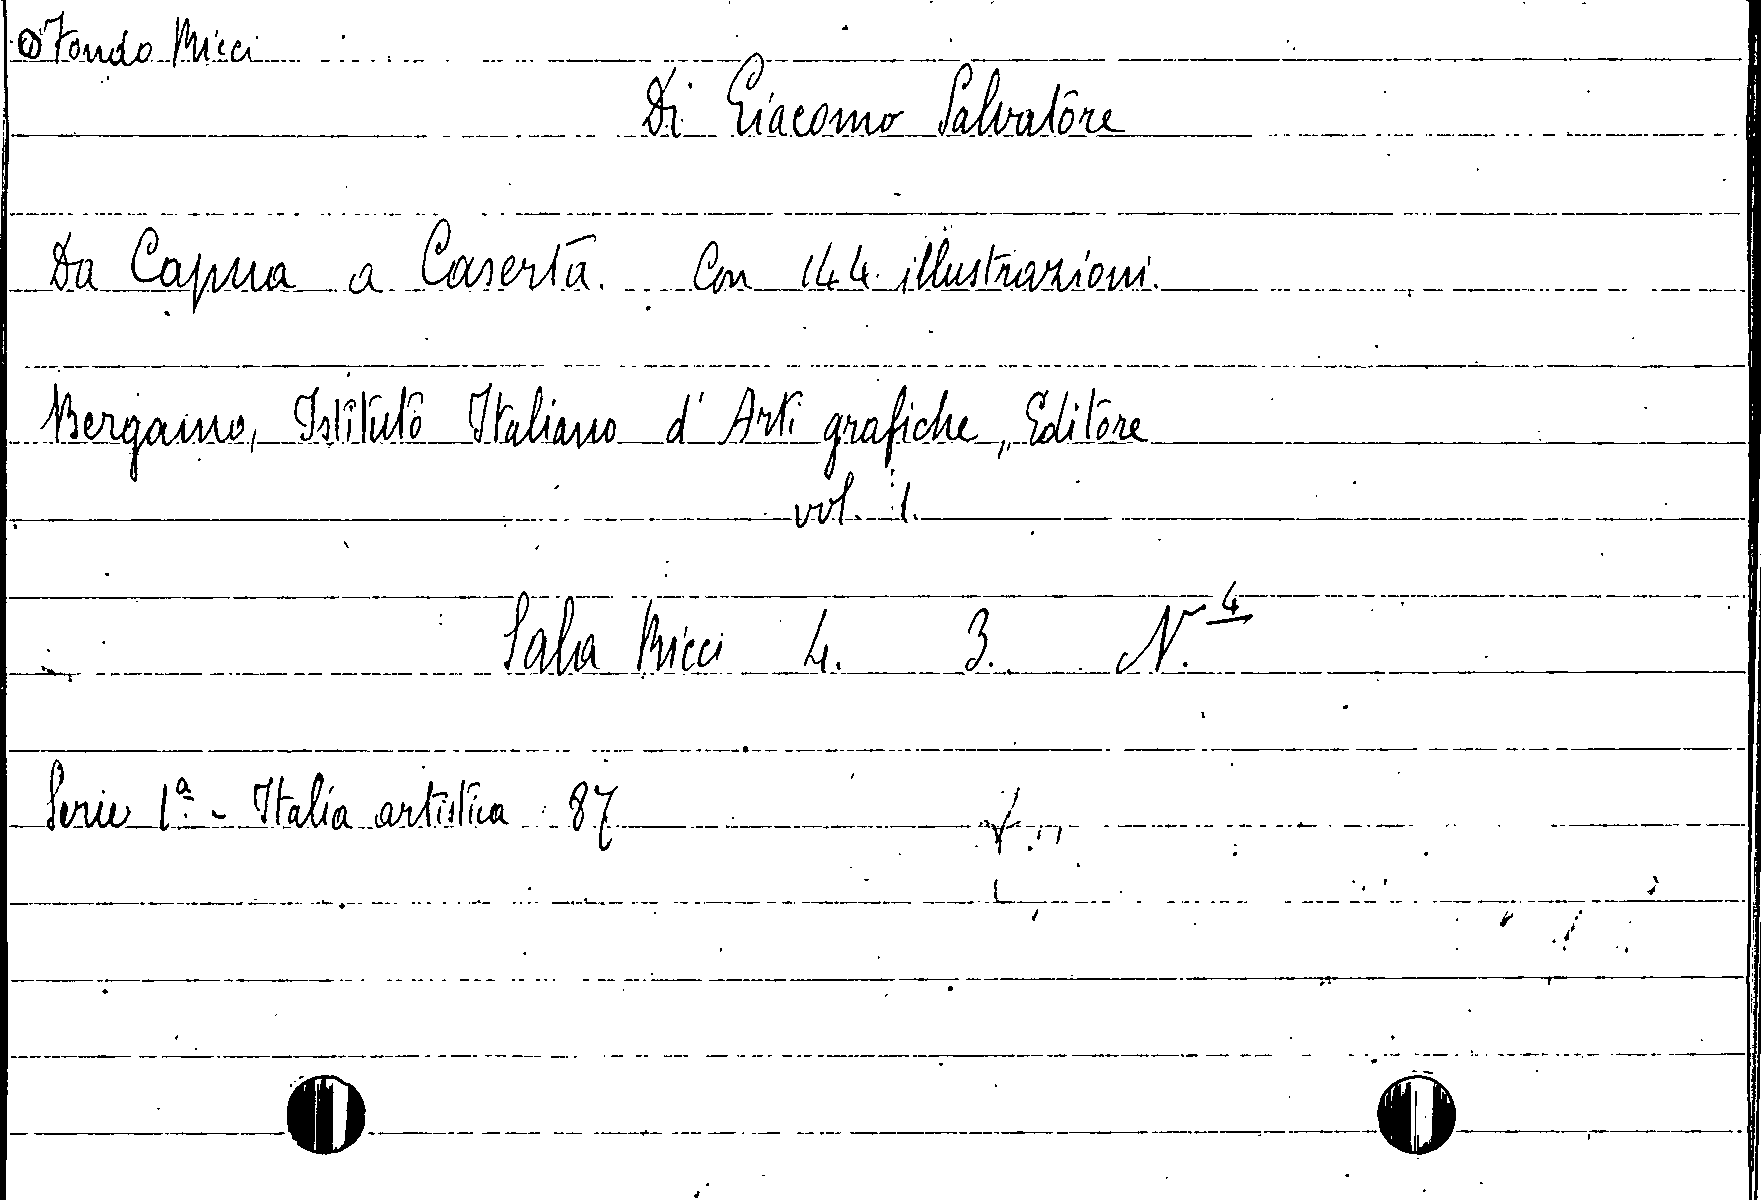 Fondo Ricci
Di Giacomo Salvatore
Da Capua a Caserta. Con 144 illustrazioni.
Bergamo, Istituto Italiano d'Arti grafiche, Editore
vol. 1.
Sala Ricci 4. 3. N. 4
Serie 1ª - Italia artistica 87